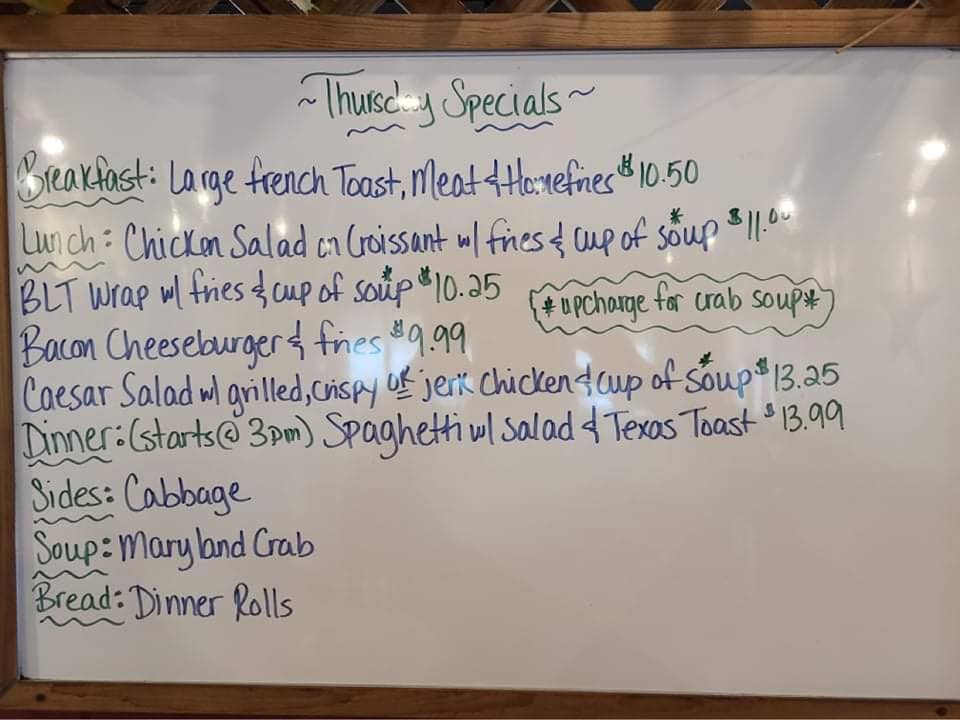 ~Thursday Specials~
Breakfast: Large french Toast, Meat & Homefries $10.50
Lunch: Chicken Salad on Croissant w/ fries & cup of *soup $11.00
BLT Wrap w/ fries & cup of *soup $10.25
*upcharge for crab soup*
Bacon Cheeseburger & fries $9.99
Caesar Salad w/ grilled, crispy or jerk chicken & cup of *soup $13.25
Dinner: (starts @ 3pm) Spaghetti w/ salad & Texas Toast $13.99
Sides: Cabbage
Soup: Maryland Crab
Bread: Dinner Rolls